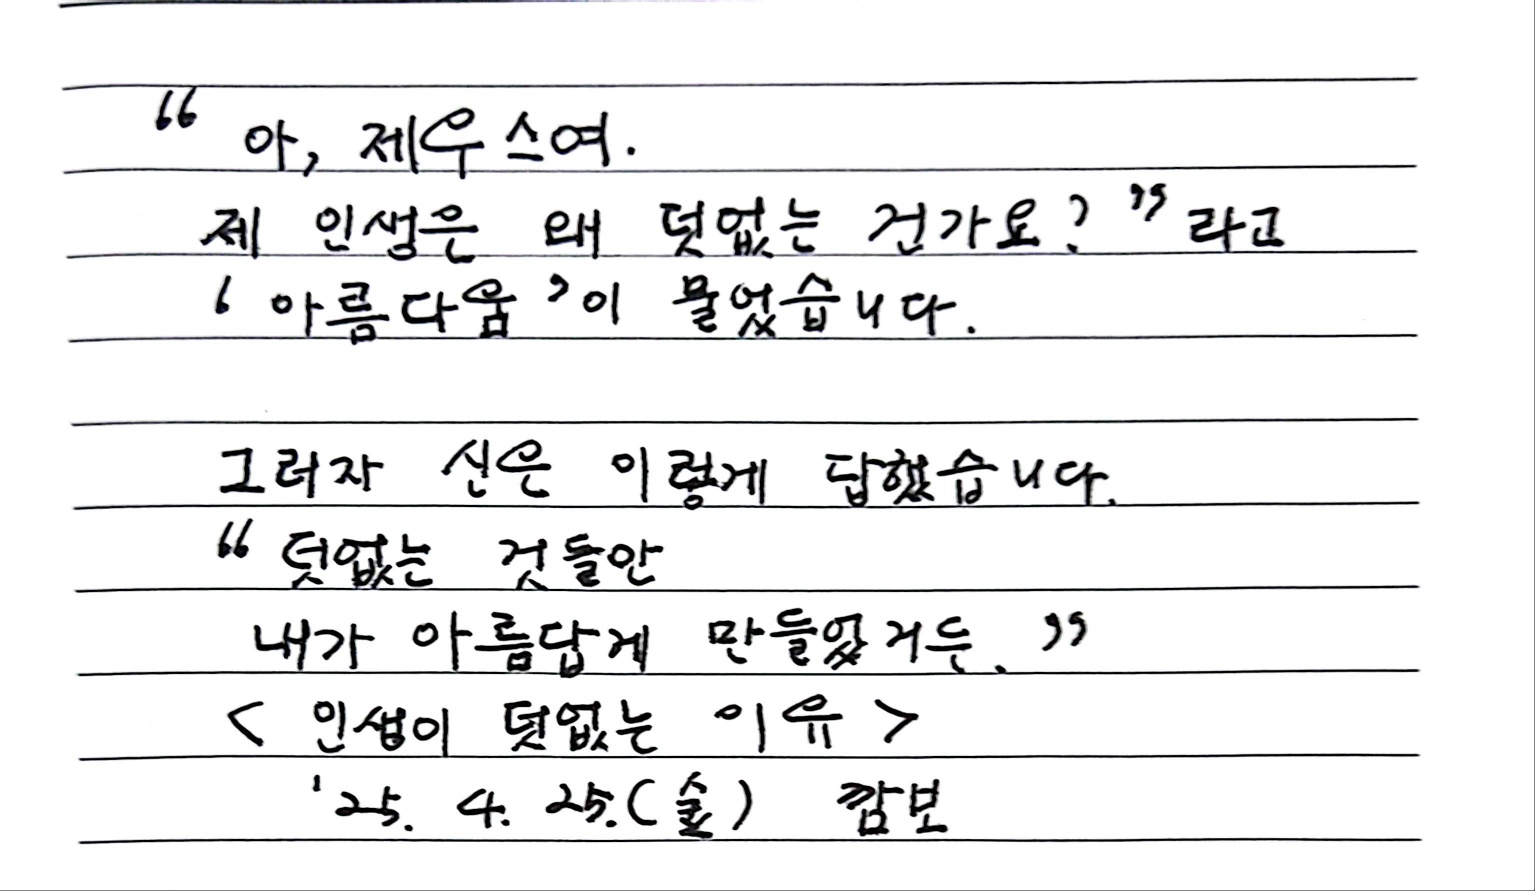 “ 아, 제우스여.
제 인생은 왜 덧없는 건가요? ” 라고
‘ 아름다움 ’이 물었습니다.
그러자 신은 이렇게 답했습니다.
“ 덧없는 것들만
내가 아름답게 만들었거든. ”
< 인생이 덧없는 이유 >
'25. 4. 25.(金) 깜보